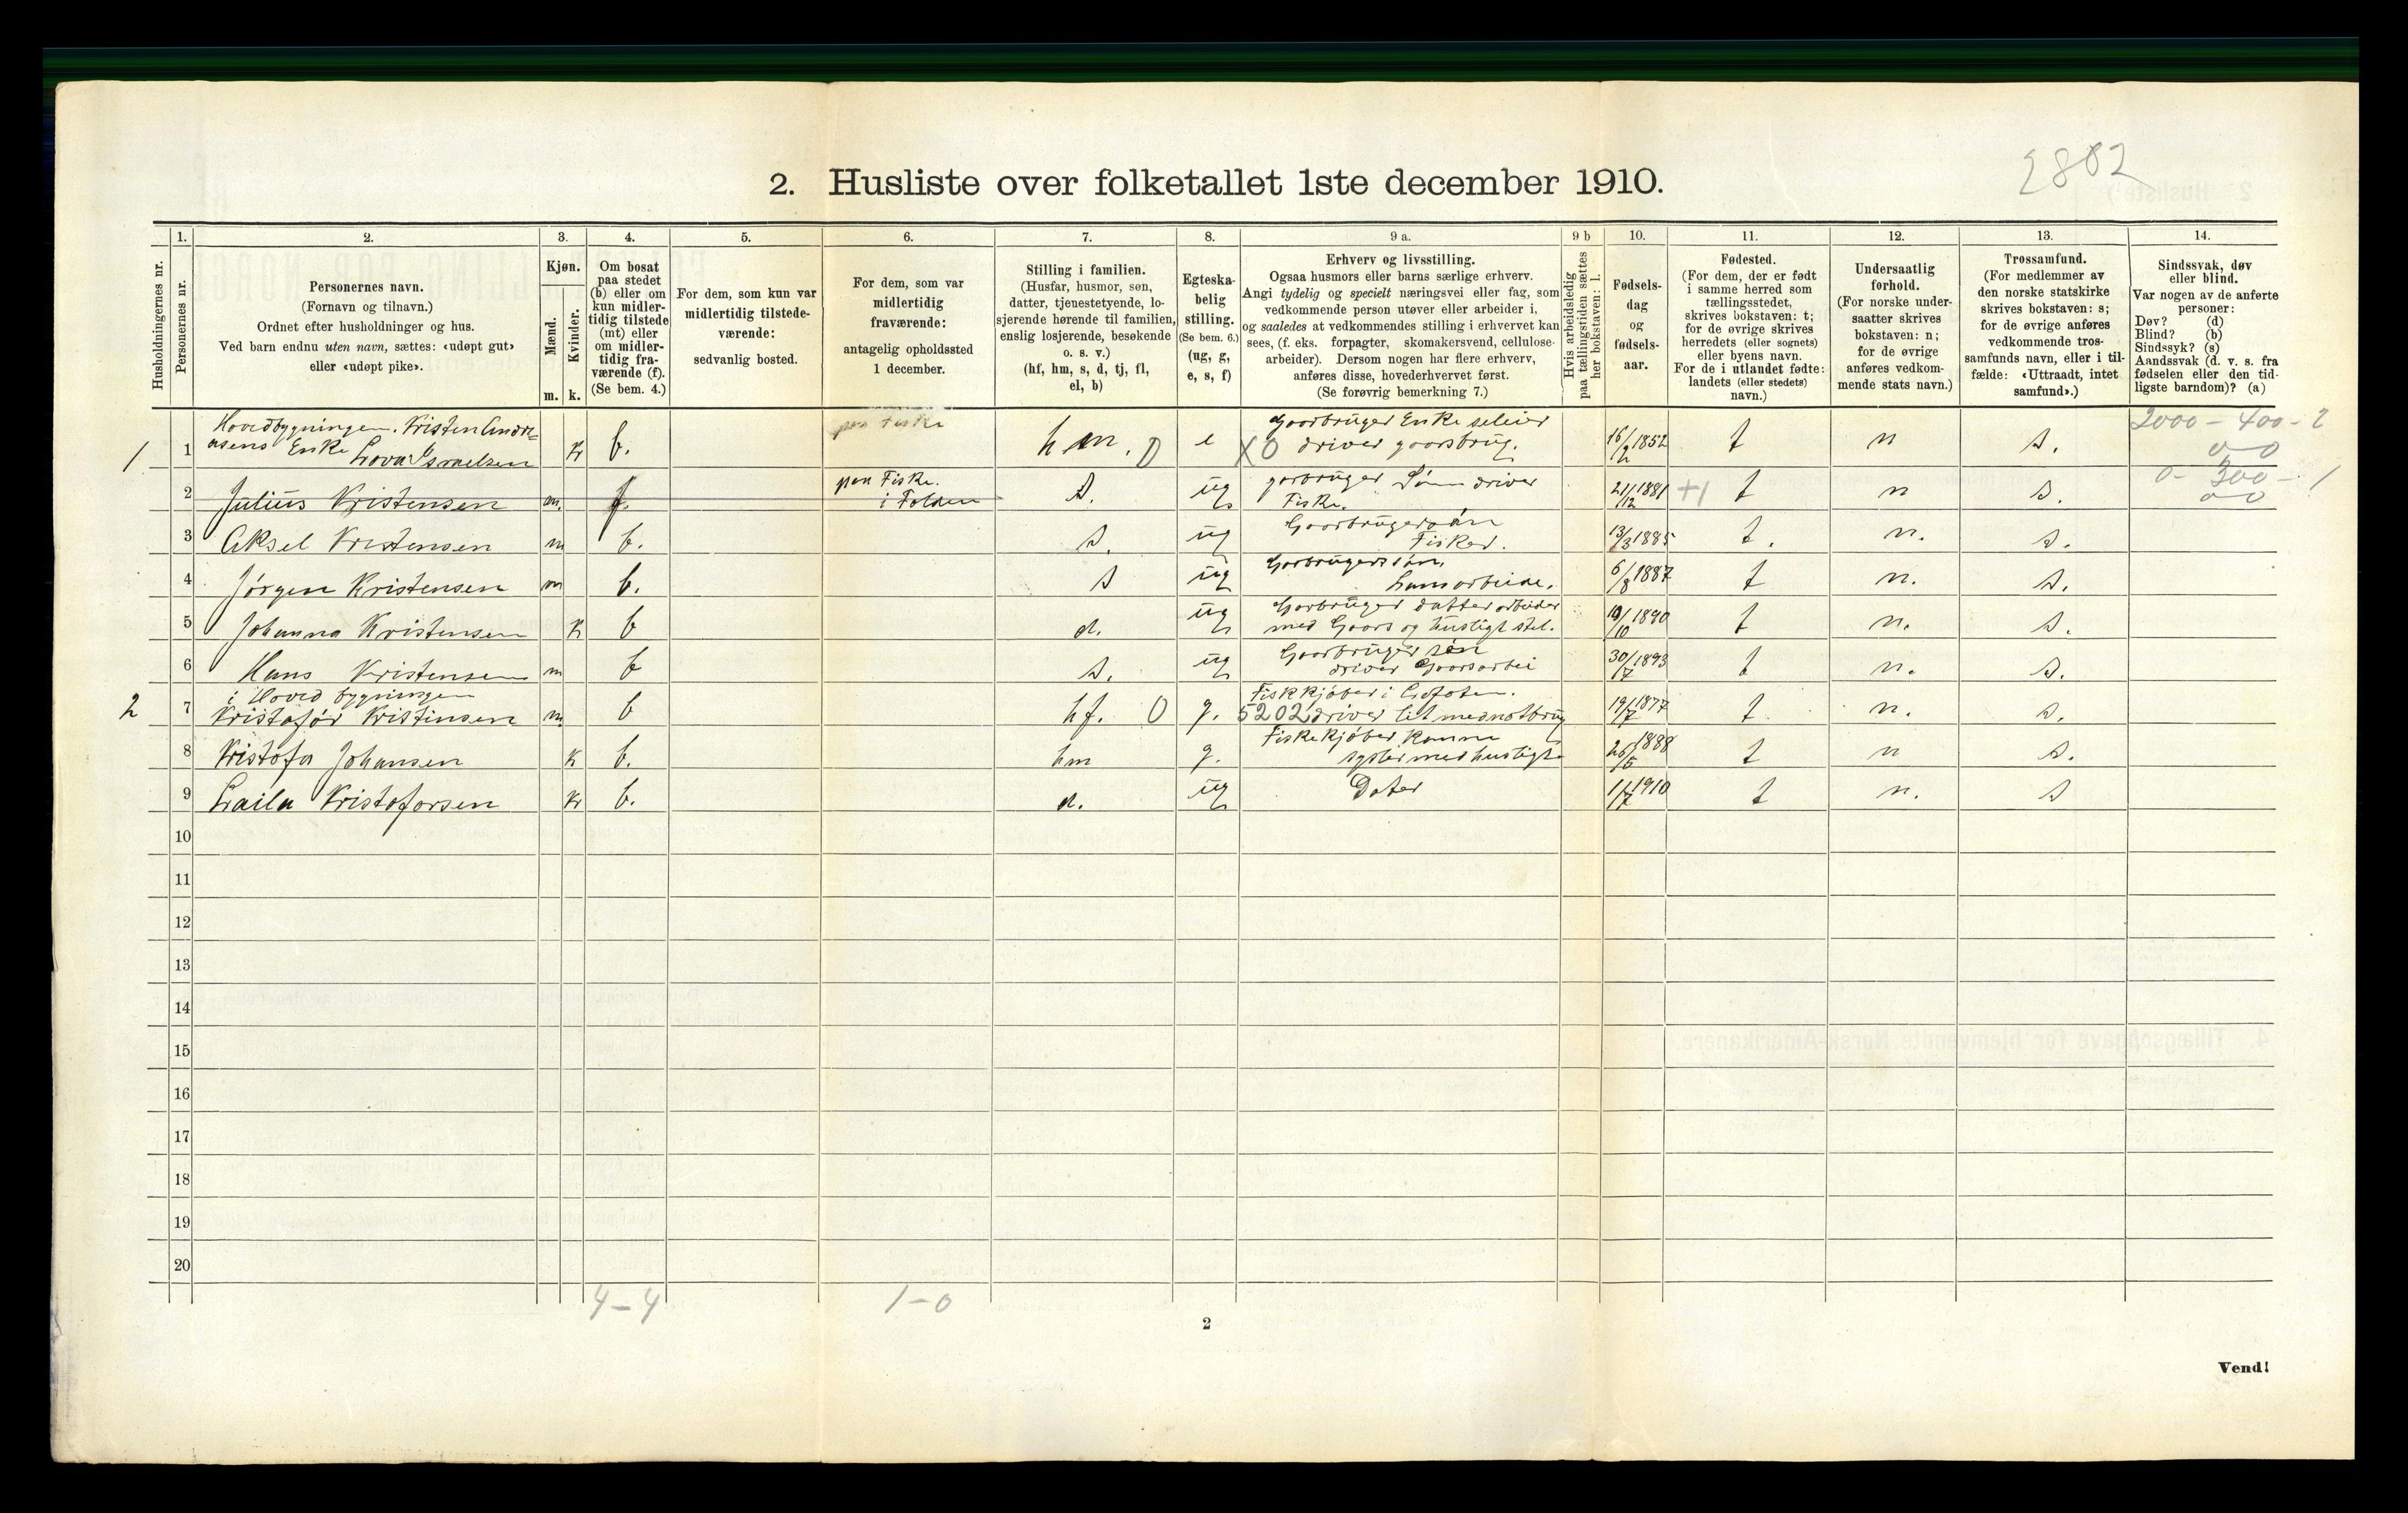 2802
2. Husliste over folketallet 1ste december 1910.
Husholdningernes nr.
1.
Personernes nr.
2.
Personernes navn.
(Fornavn og tilnavn.)
Ordnet efter husholdninger og hus.
Ved barn endnu uten navn, sættes: «udøpt gut»
eller «udøpt pike».
3.
Kjøn.
Mænd.
Kvinder.
m. k.
4.
Om bosat
paa stedet
(b) eller om
kun midler-
tidig tilstede
(mt) eller
om midler-
tidig fra-
værende (f).
(Se bem. 4.)
5.
For dem, som kun var
midlertidig tilstede-
værende:
sedvanlig bosted.
6.
For dem, som var
midlertidig
fraværende:
antagelig opholdssted
1 december.
7.
Stilling i familien.
(Husfar, husmor, søn,
datter, tjenestetyende, lo-
sjerende hørende til familien,
enslig losjerende, besøkende
o. s. v.)
(hf, hm, s, d, tj, fl,
el, b)
8.
Egteska-
belig
stilling.
(Se bem. 6.)
(ug, g,
e, s, f)
9 a.
Erhverv og livsstilling.
Ogsaa husmors eller barns særlige erhverv.
Angi tydelig og specielt næringsvei eller fag, som
vedkommende person utøver eller arbeider i,
og saaledes at vedkommendes stilling i erhvervet kan
sees, (f. eks. forpagter, skomakersvend, cellulose-
arbeider). Dersom nogen har flere erhverv,
anføres disse, hovederhvervet først.
(Se forøvrig bemerkning 7.)
9 b
Hvis arbeidsledig
paa tællingstiden sættes
her bokstaven: l.
10.
Fødsels-
dag
og
fødsels-
aar.
11.
Fødested.
(For dem, der er født
i samme herred som
tællingsstedet,
skrives bokstaven: t;
for de øvrige skrives
herredets (eller sognets)
eller byens navn.
For de i utlandet fødte:
landets (eller stedets)
navn.)
12.
Undersaatlig
forhold.
(For norske under-
saatter skrives
bokstaven: n;
for de øvrige
anføres vedkom-
mende stats navn.)
13.
Trossamfund.
(For medlemmer av
den norske statskirke
skrives bokstaven: s;
for de øvrige anføres
vedkommende tros-
samfunds navn, eller i til-
fælde: «Uttraadt, intet
samfund».)
14.
Sindssvak, døv
eller blind.
Var nogen av de anførte
personer:
Døv? (d)
Blind? (b)
Sindssyk? (s)
Aandssvak (d. v. s. fra
fødselen eller den tid-
ligste barndom)? (a)
Hovedbygningen. Kristen Andre= paa Fiske Gaarbruger Enke 2000 - 400 - 2
1 1 asens Enke Lova Israelsen k b. hm. 0 e X0 driver gaarsbrug. 16/2 1852 t n s. 0-0
paa Fiske. garbruger Sønn driver 0- 300 - 1
2 Julius Kristensen m. f. i Folden s. ug Fiske. 21/12 1881 +1 t n s. 0-0
Gaarbrugersøn
3 Aksel Kristensen m b. s. ug Fisker. 13/3 1885 t. n. s.
Garbrugerssøn,
4 Jørgen Kristensen m b. s ug 6/8 1887 t n. s.
Garbruger datter arbeider
5 Johanna Kristensen k b d. ug med Gaars og husligt stel. 19/10 1890 t n. s.
Gaarbruger søn
6 Hans Kristensen m b s. ug driver Gaarsarbei 30/7 1893 t n. s.
i Hoved bygningen Fiskkjøber i Lofoten.
2 7 Kristofør Kristinsen m. b hf. 0 g. 5202 driver lit mednotbrug 19/7 1877 t n. s.
Fiskekjøber Kanne
8 Kristofa Johansen k b. hm g. sysler med husligt 26/5 1888 t n s.
9 Laila Kristoforsen k b. d. ug Dater 1/7 1910 t n. s
10
11
12
13
14
15
16
17
18
19
20
4-4 1-0
2
Vend!